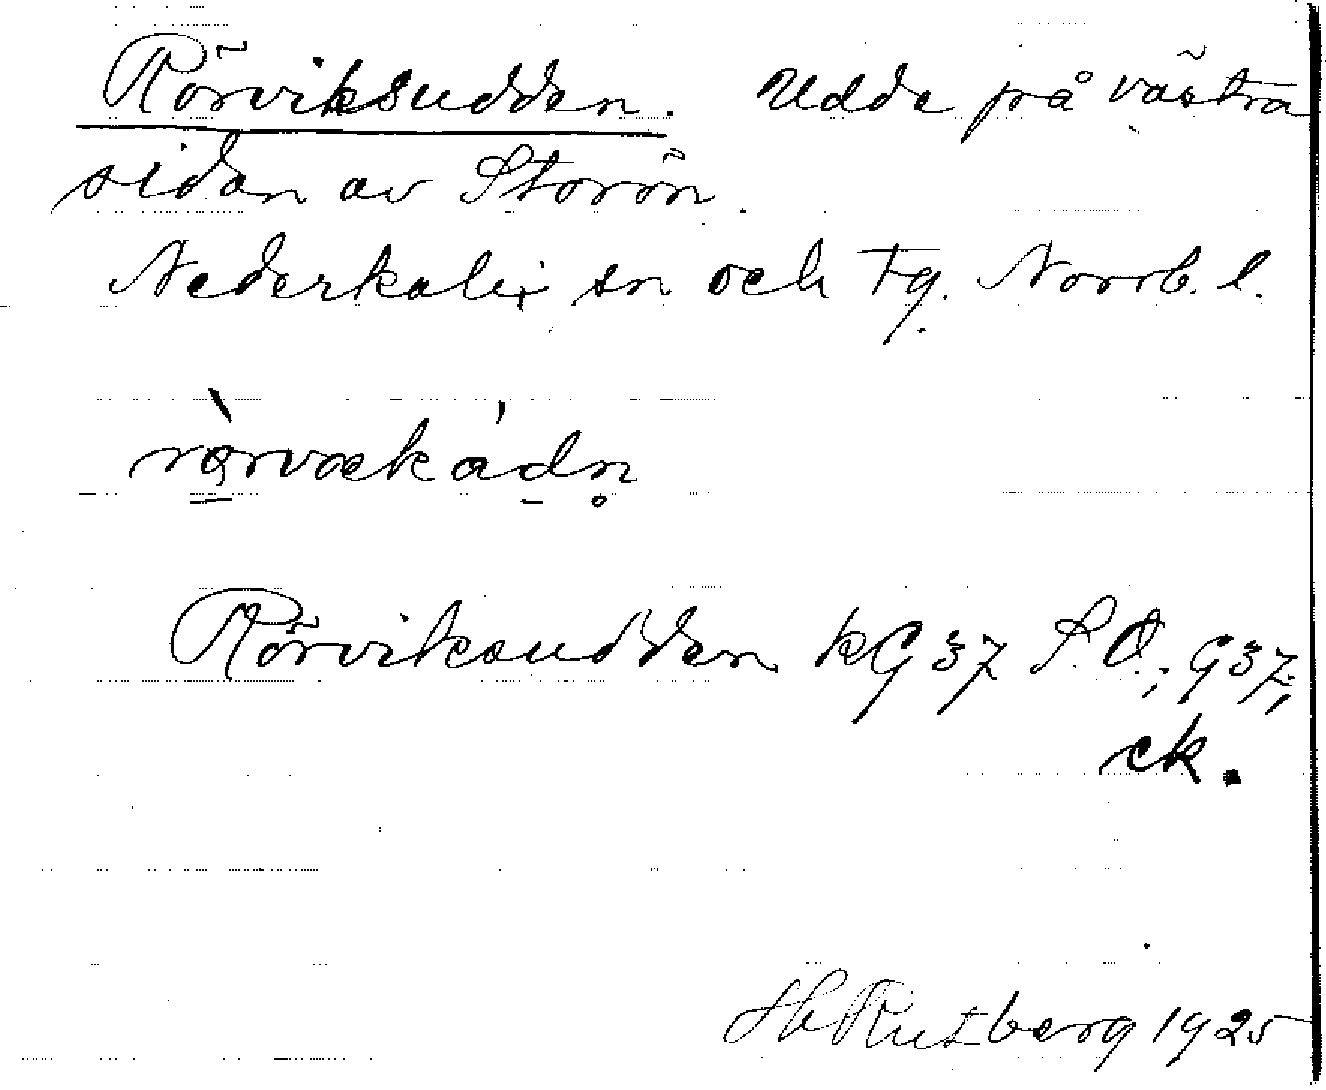 Rörviksudden. Udde på västra
sidan av Storön.
Nederkalix sn och tg. Norrb. l.
Rörviksudden kG37 S.O.; G37;
ck.
H Rutberg 1925